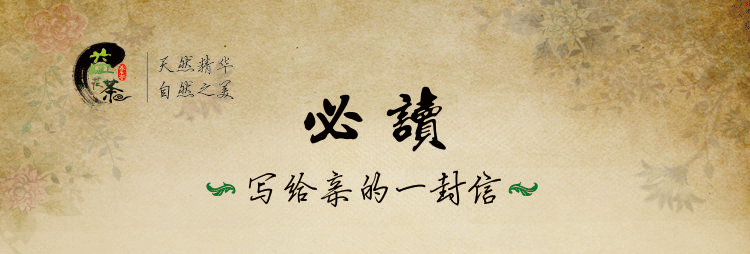 益茶
天然精华
自然之美
必讀
写给亲的一封信